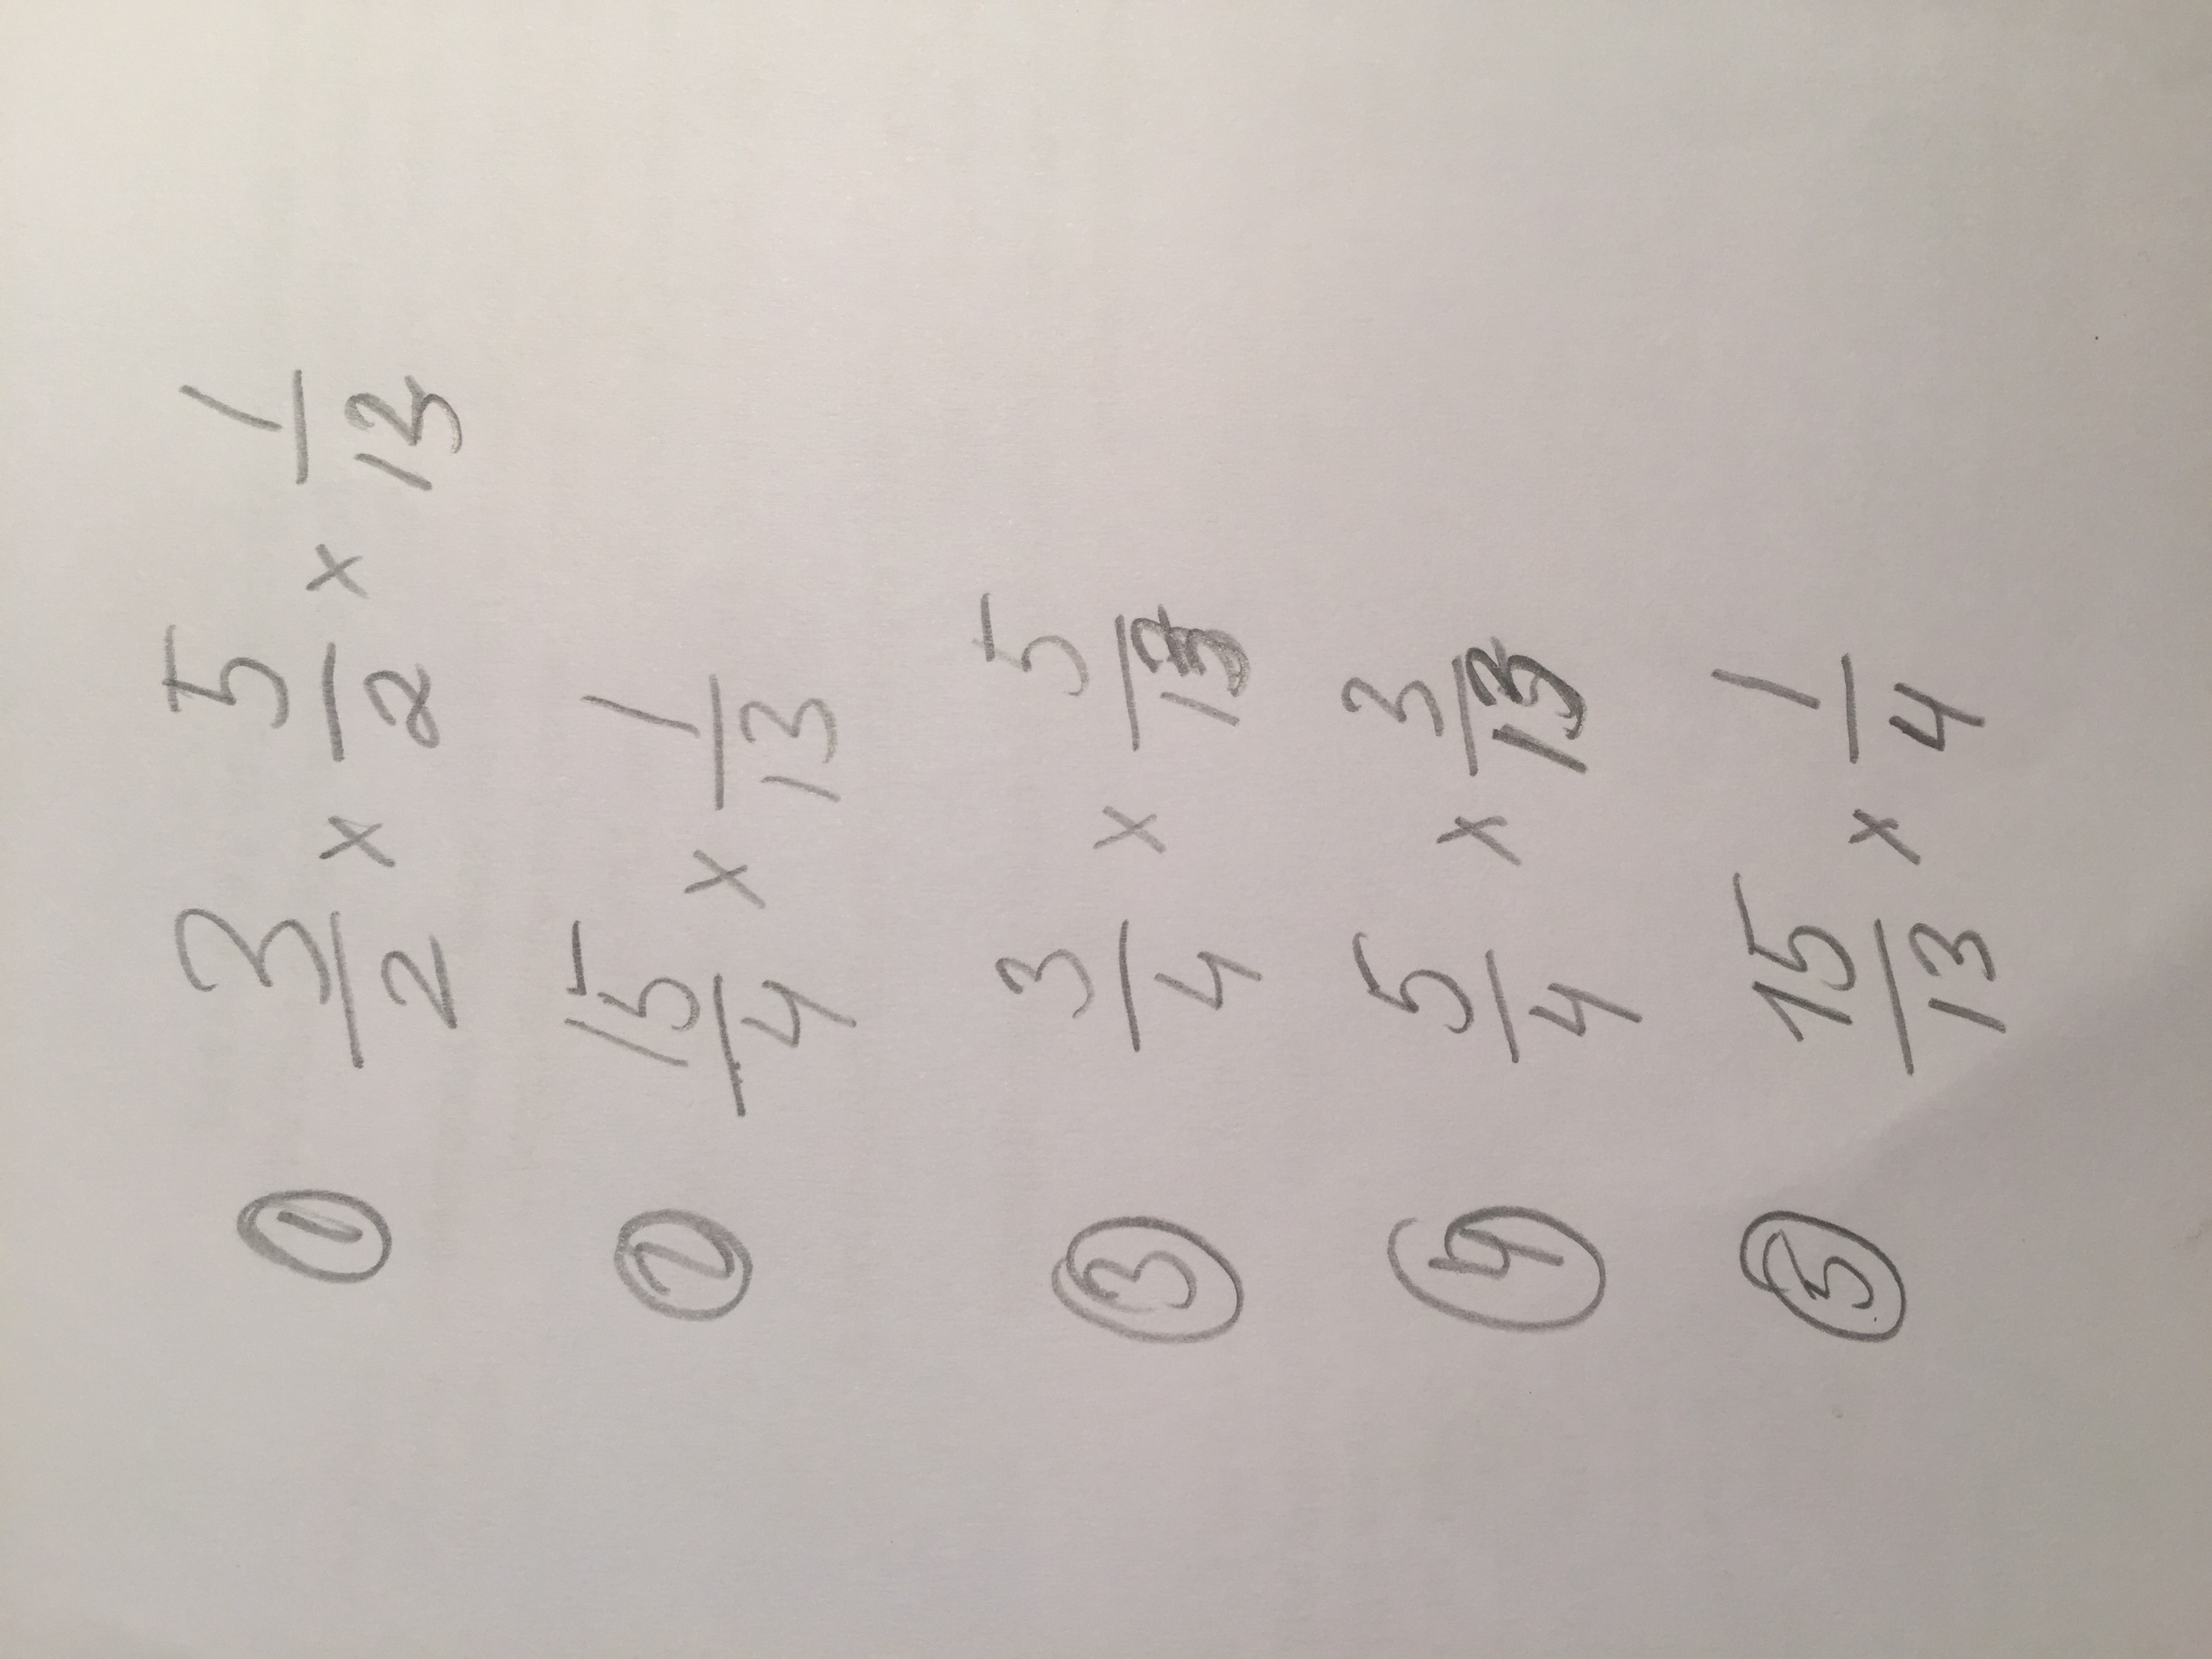 ① 3/2 × 5/2 × 1/13
② 15/4 × 1/13
③ 3/4 × 5/13
④ 5/4 × 3/13
③ 15/13 × 1/4